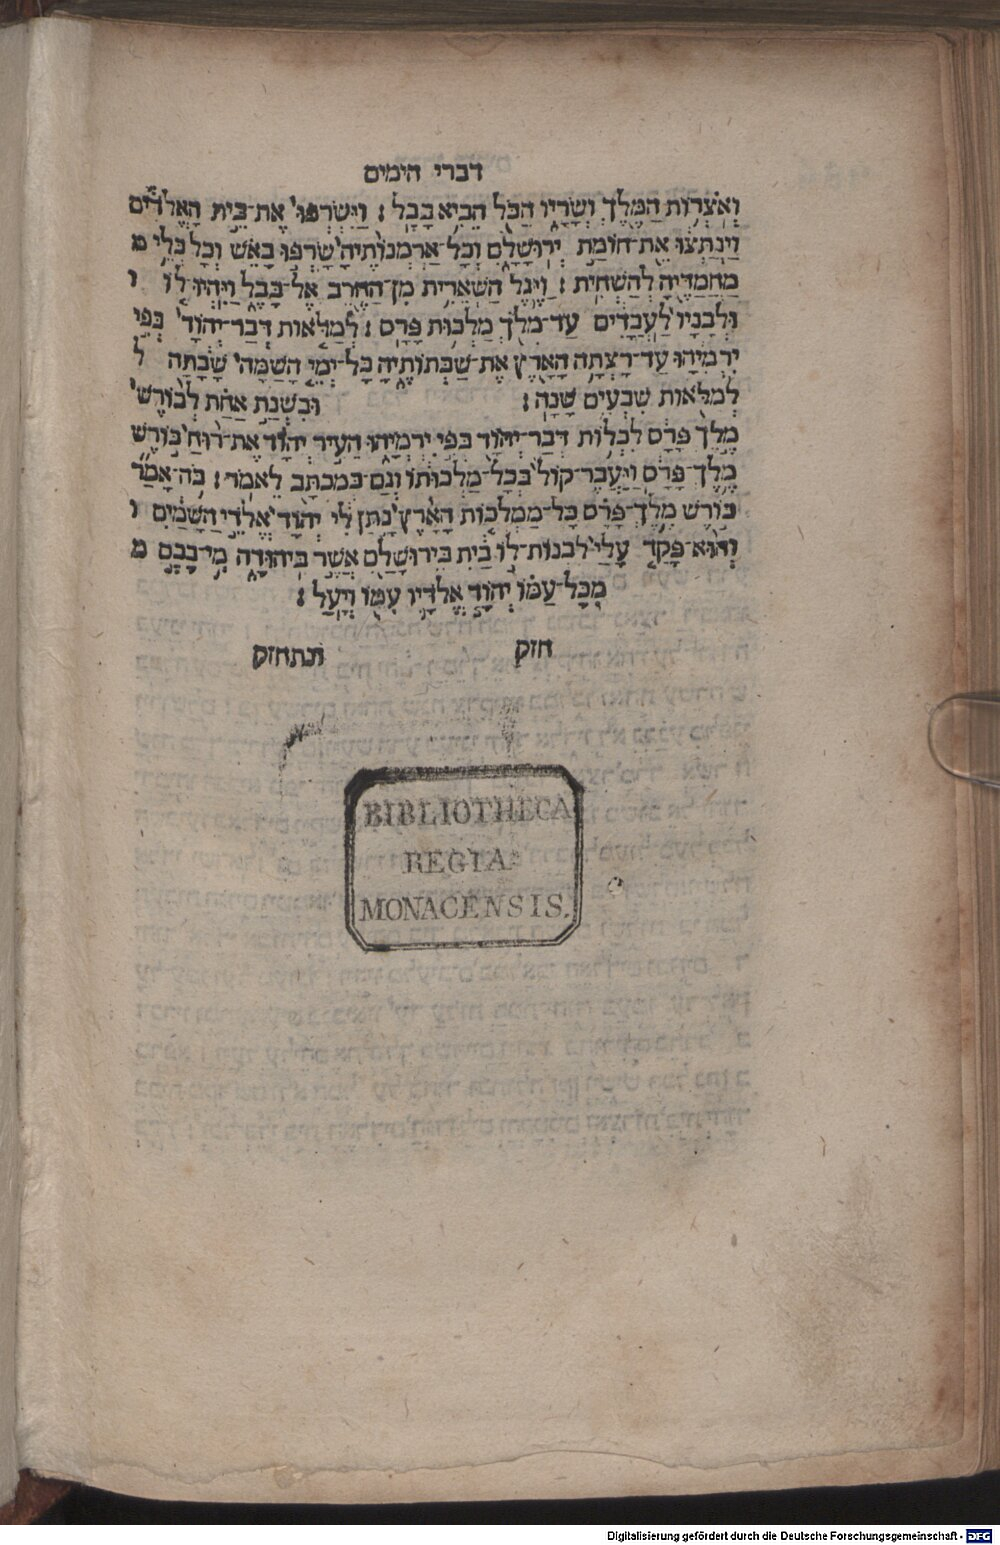 דברי הימים
וְאֹצְרוֹת הַמֶּלֶךְ וְשָׂרָיו הַכֹּל הֵבִיא בָבֶל׃ וַיִּשְׂרְפוּ אֶת־בֵּית הָאֱלֹדִים
וַיְנַתְּצוּ אֵת חוֹמַת יְרוּשָׁלָ͏ִם וְכָל־אַרְמְנוֹתֶיהָ שָׂרְפוּ בָאֵשׁ וְכָל כְּלֵי מ
מַחֲמַדֶּיהָ לְהַשְׁחִית׃ וַיֶּגֶל הַשְּׁאֵרִית מִן־הַחֶרֶב אֶל־בָּבֶל וַיִּהְיוּ־לוֹ ו
וּלְבָנָיו לַעֲבָדִים עַד־מְלֹךְ מַלְכוּת פָּרָס׃ לְמַלֹּאות דְּבַר־יְהֹוָד בְּפִי
יִרְמְיָהוּ עַד־רָצְתָה הָאָרֶץ אֶת־שַׁבְּתוֹתֶיהָ כָּל־יְמֵי הָשַּׁמָּה שָׁבָתָה ל
לְמַלֹּאות שִׁבְעִים שָׁנָה׃ וּבִשְׁנַת אַחַת לְכוֹרֶשׁ
מֶלֶךְ פָּרַס לִכְלוֹת דְּבַר־יְהֹוָד בְּפִי יִרְמְיָהוּ הֵעִיר יְהֹוָד אֶת־רוּחַ כּוֹרֶשׁ
מֶלֶךְ פָּרַס וַיַּעֲבֶר קוֹל בְּכָל־מַלְכוּתוֹ וְגַם־בְּמִכְתָּב לֵאמֹר׃ כֹּה־אָמַר
כּוֹרֶשׁ מֶלֶךְ־פָּרַס כָּל־מַמְלְכוֹת הָאָרֶץ נָתַן לִי יְהֹוָד אֱלֹדֵי הַשָּׁמַיִם ו
וְהוּא־פָקַד עָלַי לִבְנוֹת־לוֹ בַיִת בִּירוּשָׁלַ͏ִם אֲשֶׁר בִּיהוּדָה מִי־בָכֶם מ
מִכָּל־עַמּוֹ יְהֹוָד אֱלֹדָיו עִמּוֹ וְיָעַל׃
חזק ונתחזק
BIBLIOTHECA
REGIA
MONACENSIS.
Digitalisierung gefördert durch die Deutsche Forschungsgemeinschaft - DFG